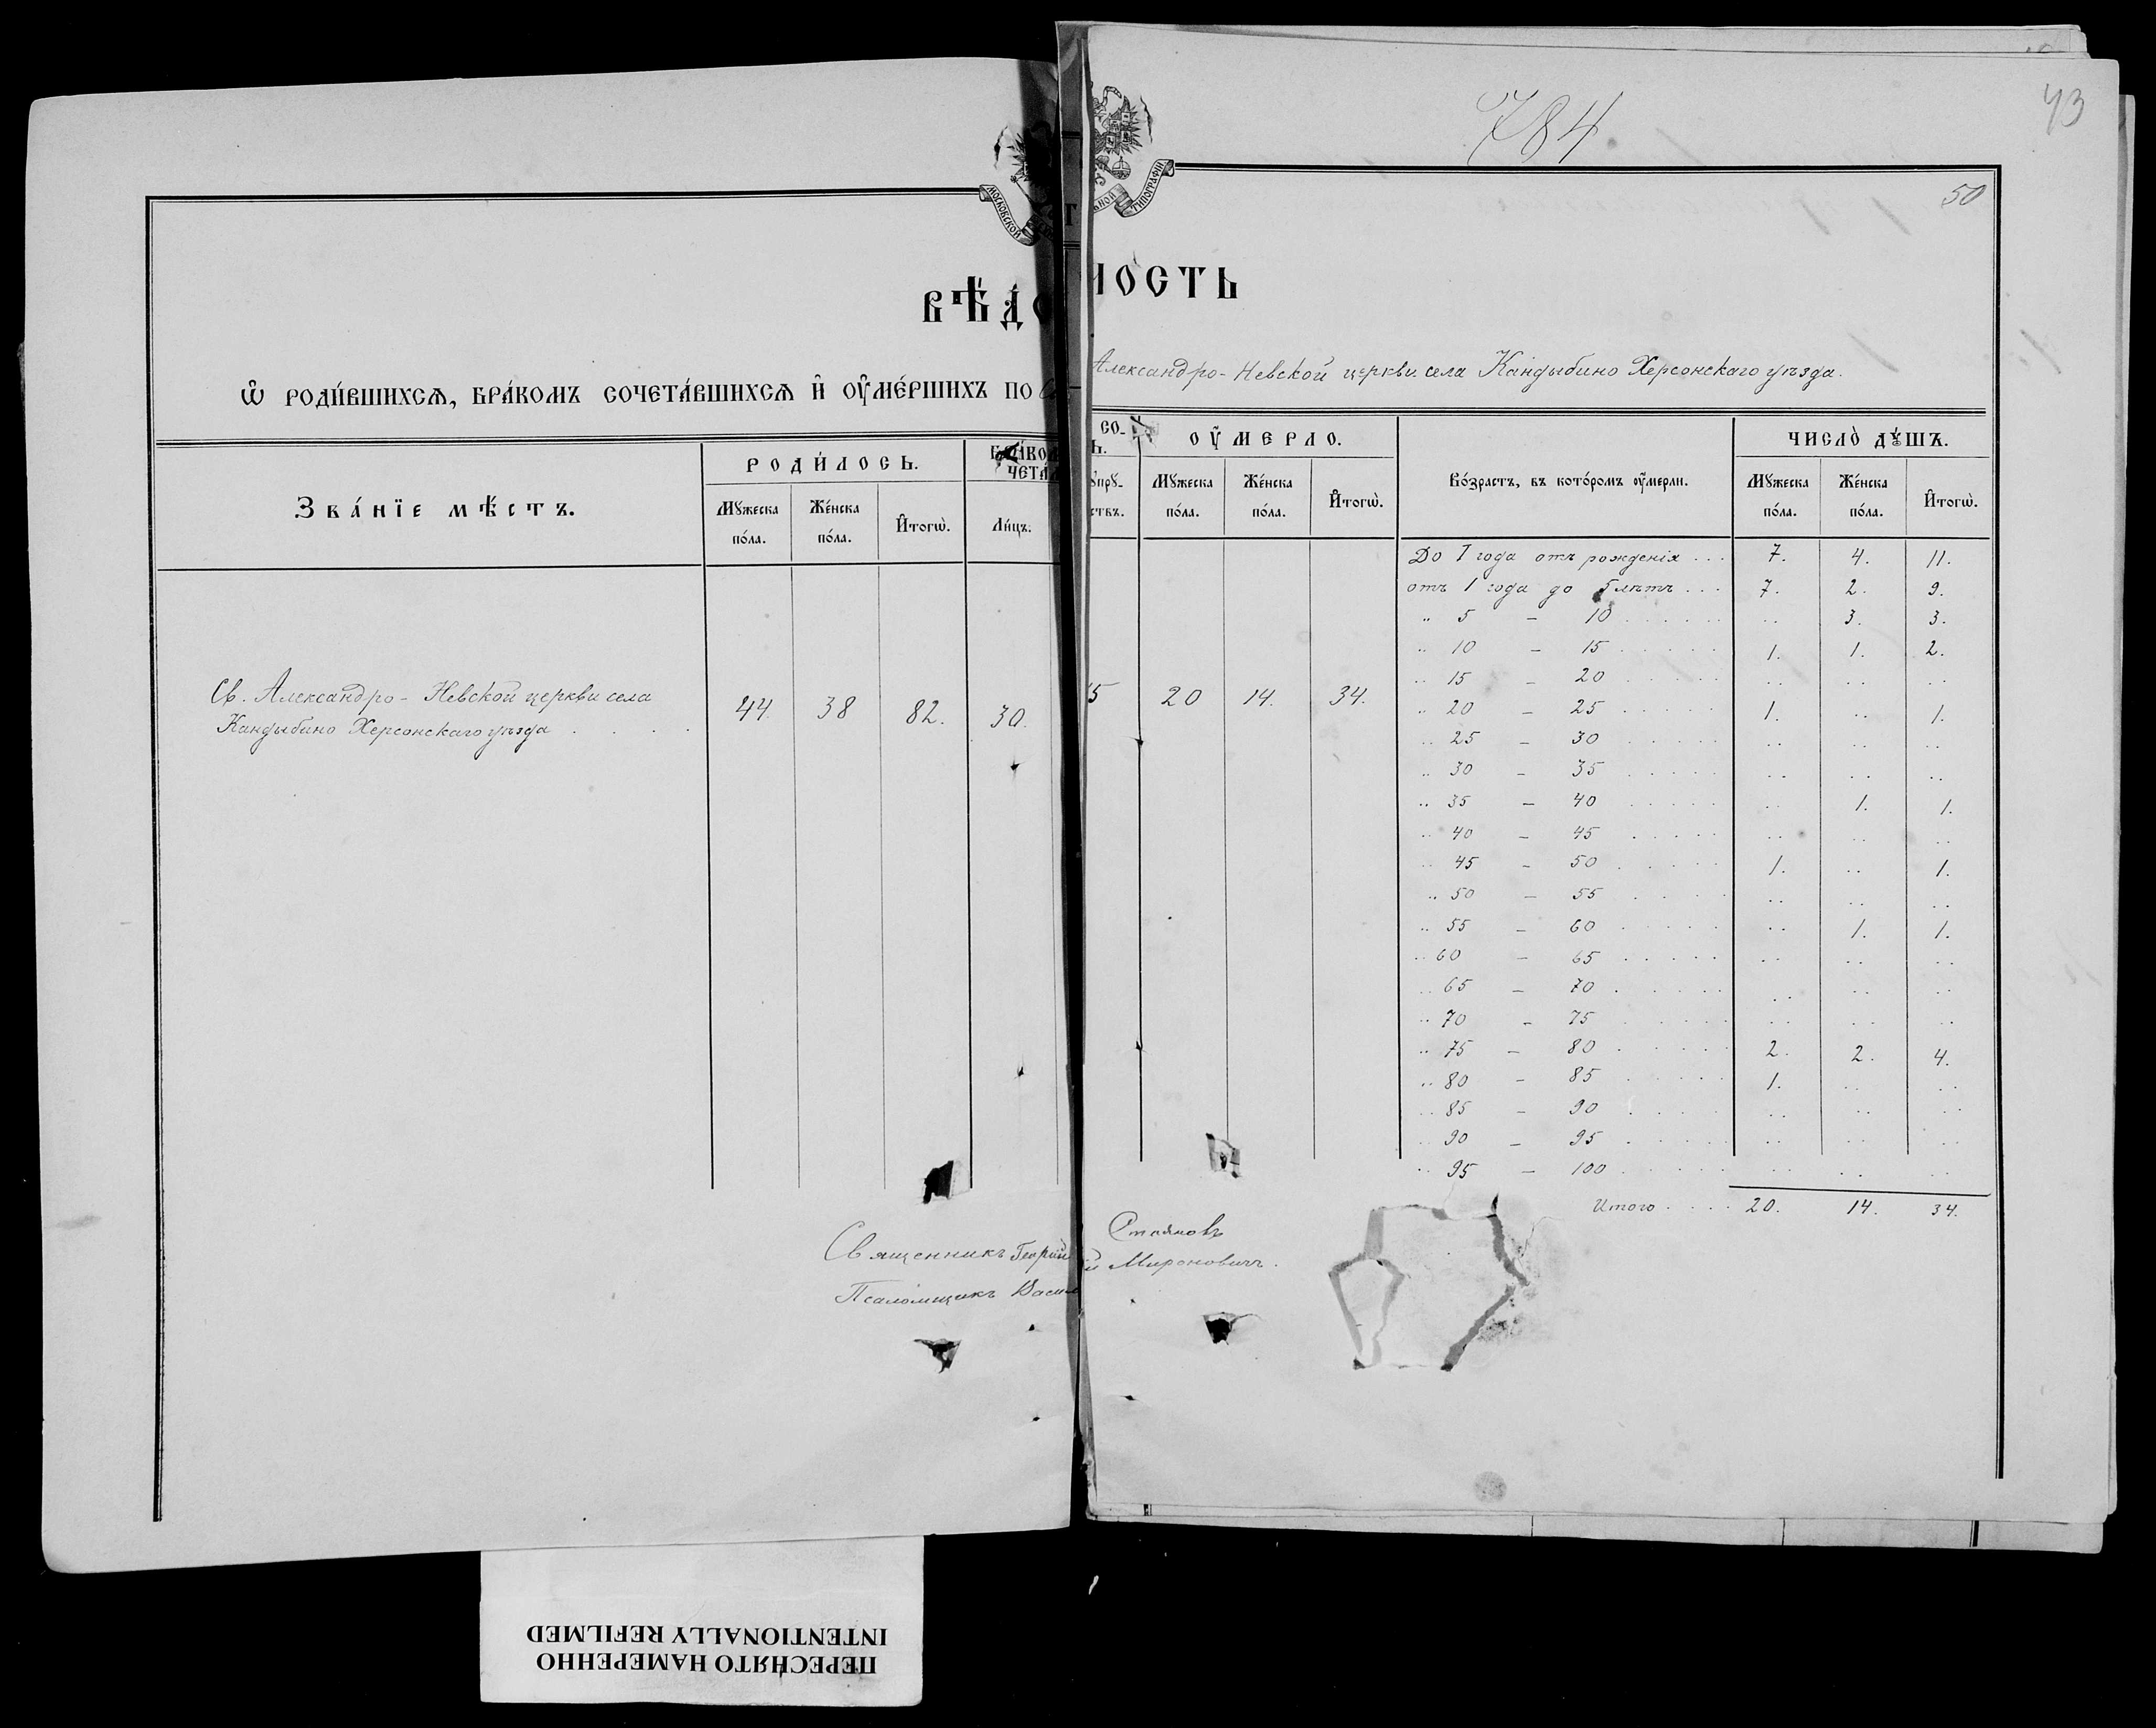 784
43
50
МОСКОВСКОЙ
ТИПОГРАФІИ
ВѢДО МОСТЬ
Ѡ РОДИ́ВШИХСѦ, БРА́КОМЪ СОЧЕТА́ВШИХСѦ И҆ ОУ҆МЕ́РШИХЪ ПО Св. Александро-Невской церкви села Кандыбино Херсонскаго уѣзда.
Зва́нїе мѣ́стъ.
РОДИ́ЛОСЬ.
Мꙋжеска по́ла.
Же́нска по́ла.
И҆тогѡ̀.
БРА́КОМ СО-
ЧЕТА́Л Ь.
Ли́цъ.
ꙋпрꙋ-
ствъ.
ОУ҆МЕРЛО.
Мꙋжеска по́ла.
Же́нска по́ла.
И҆тогѡ̀.
Во́зрастъ, въ кото́ромъ оу҆мерли.
ЧИСЛО̀ ДꙊ́ШЪ.
Мꙋжеска по́ла.
Же́нска по́ла.
И҆тогѡ̀.
Св. Александро-Невской церкви села
Кандыбино Херсонскаго уѣзда . . . .
44. 38 82. 30. 15 20 14. 34.
До 1 года отъ рожденія . . . 7. 4. 11.
отъ 1 года до 5 лѣтъ . . . 7. 2. 9.
„ 5 – 10 . . . . . .. 3. 3.
„ 10 – 15 . . . . . 1. 1. 2.
„ 15 – 20 . . . . . .. .. ..
„ 20 – 25 . . . . . 1. .. 1.
„ 25 – 30 . . . . . .. .. ..
„ 30 – 35 . . . . . .. .. ..
„ 35 – 40 . . . . . .. 1. 1.
„ 40 – 45 . . . . . .. .. ..
„ 45 – 50 . . . . . 1. .. 1.
„ 50 – 55 . . . . .. .. ..
„ 55 – 60 . . . . . .. 1. 1.
„ 60 – 65 . . . . . .. .. ..
„ 65 – 70 . . . . .. .. ..
„ 70 – 75 . . . . .. .. ..
„ 75 – 80 . . . . . 2. 2. 4.
„ 80 – 85 . . . . . 1. .. ..
„ 85 – 90 . . . . .. .. ..
„ 90 – 95 . . . . . .. .. ..
„ 95 – 100 . . . . . .. .. .
Итого . . . . 20. 14. 34.
Священникъ Георгій Стояновъ
Псаломщикъ Васил ій Мироновичъ.
ПЕРЕСНЯТО НАМЕРЕННО
INTENTIONALLY REFILMED